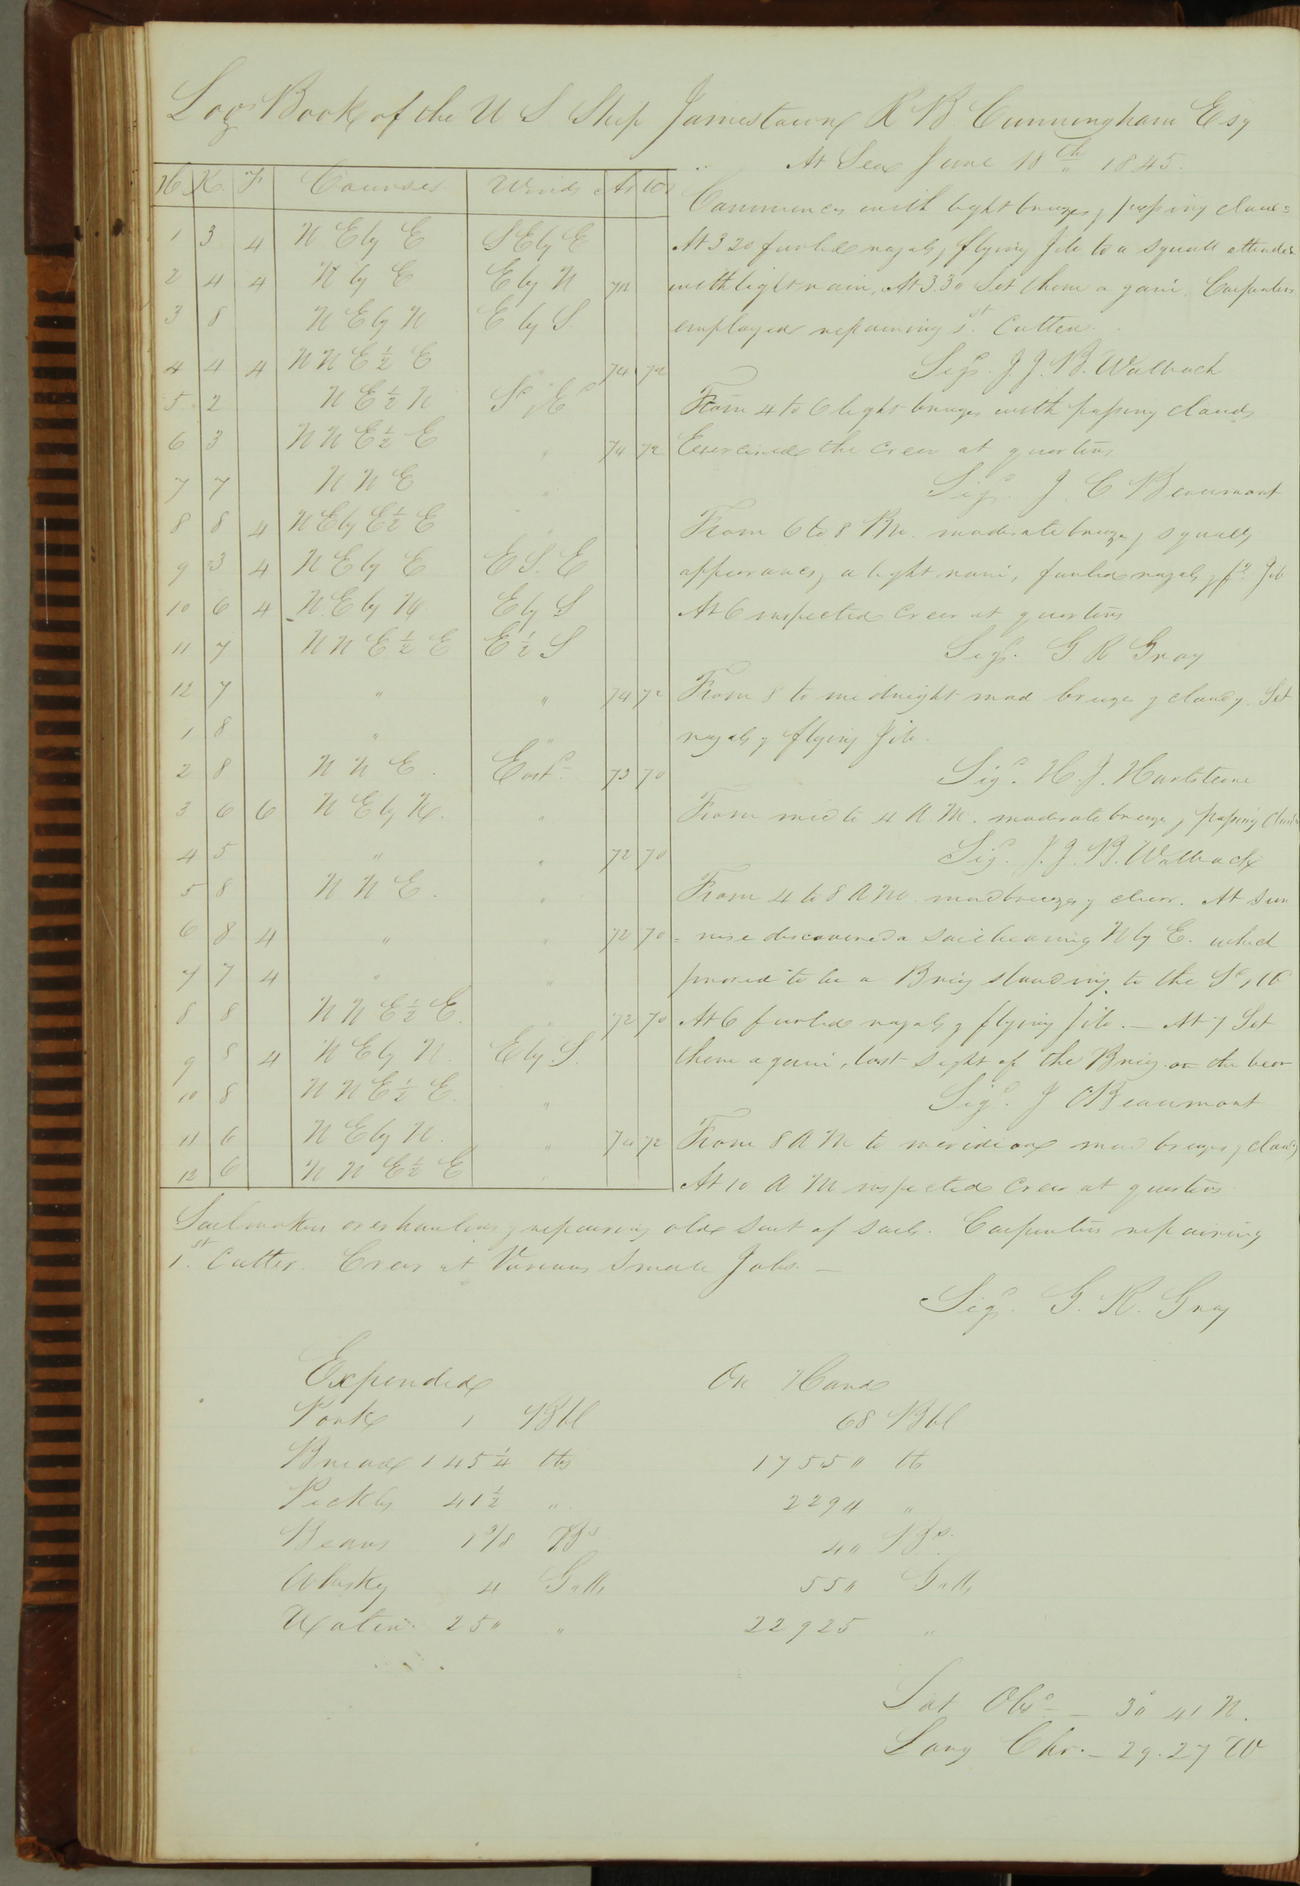 Log Book of the U S Ship Jamestown R B Cunningham Esq
At Sea June 18th 1845.
H K F Courses Winds Ar Wr
1 3 4 N E by E S E by E
2 4 4 N by E E by N 74
3 8 N E by N E by S
4 4 4 N N E ½ E 74 72
5 2 N E ½ N Sd & Ed
6 3 N N E ½ E " 74 72
7 7 N N E "
8 8 4 N E by E ½ E "
9 3 4 N E by E E S. E
10 6 4 N. E by N E by S
11 7 N N E ½ E E ½ S
12 7 " " 74 72
1 8 " "
2 8 N N E. Estd 72 70
3 6 6 N E by N. "
4 5 " " 72 70
5 8 N N E. "
6 8 4 " " 72 70
7 7 4 " "
8 8 N N E ½ E. " 72 70
9 8 4 N E by N. E by S.
10 8 N N E ½ E. "
11 6 N E by N. " 74 72
12 6 N N E ½ E "
Commences with light breezes & passing clouds
At 3 20 furled royals & flying Jib to a squall attended
with light rain, At 3.30 Set them again. Carpenters
employed repairing 1st Cutter.
Sigd. J. J. B. Walbach
From 4 to 6 light breezes with passing clouds
Exercised the crew at quarters
Sigd. J. C Beaumont
From 6 to 8 P.M. moderate breeze & squally
appearances, a light rain, furled royals & fg. Jib
At 6 inspected crew at quarters
Sigd. G R Gray
From 8 to midnight mod breezes & cloudy. Set
royals & flying Jib.
Sigd. H. J. Hartstene
From mid to 4 A. M. moderate breeze & passing clouds
Sigd. J. J. B. Walbach
From 4 to 8 A M. mod breezes & clear. At Sun
= rise discovered a sail bearing N by E. which
proved to be a Brig standing to the Sd, W
At 6 furled royals & flying Jib. — At 7 Set
them again, lost sight of the Brig on the bow
Sigd. J C Beaumont
From 8 A M to meridian mod breezes & cloudy
At 10 A M inspected crew at quarters
Sailmakers overhauling & repairing old suit of sails. Carpenters repairing
1st Cutter. Crew at Various Small Jobs. —
Sigd. G. R. Gray
Expended On Hand
Pork 1 Bbl 68 Bbl
Bread 145¼ lbs 17550 lbs
Pickles 41½ " 2294 "
Beans 1 Bs 40 Bs.
Whisky 4 Galls 550 Galls
Water 250 " 22925 "
Lat Obsd — 30° 41 N.
Long Chr. — 29. 27 W